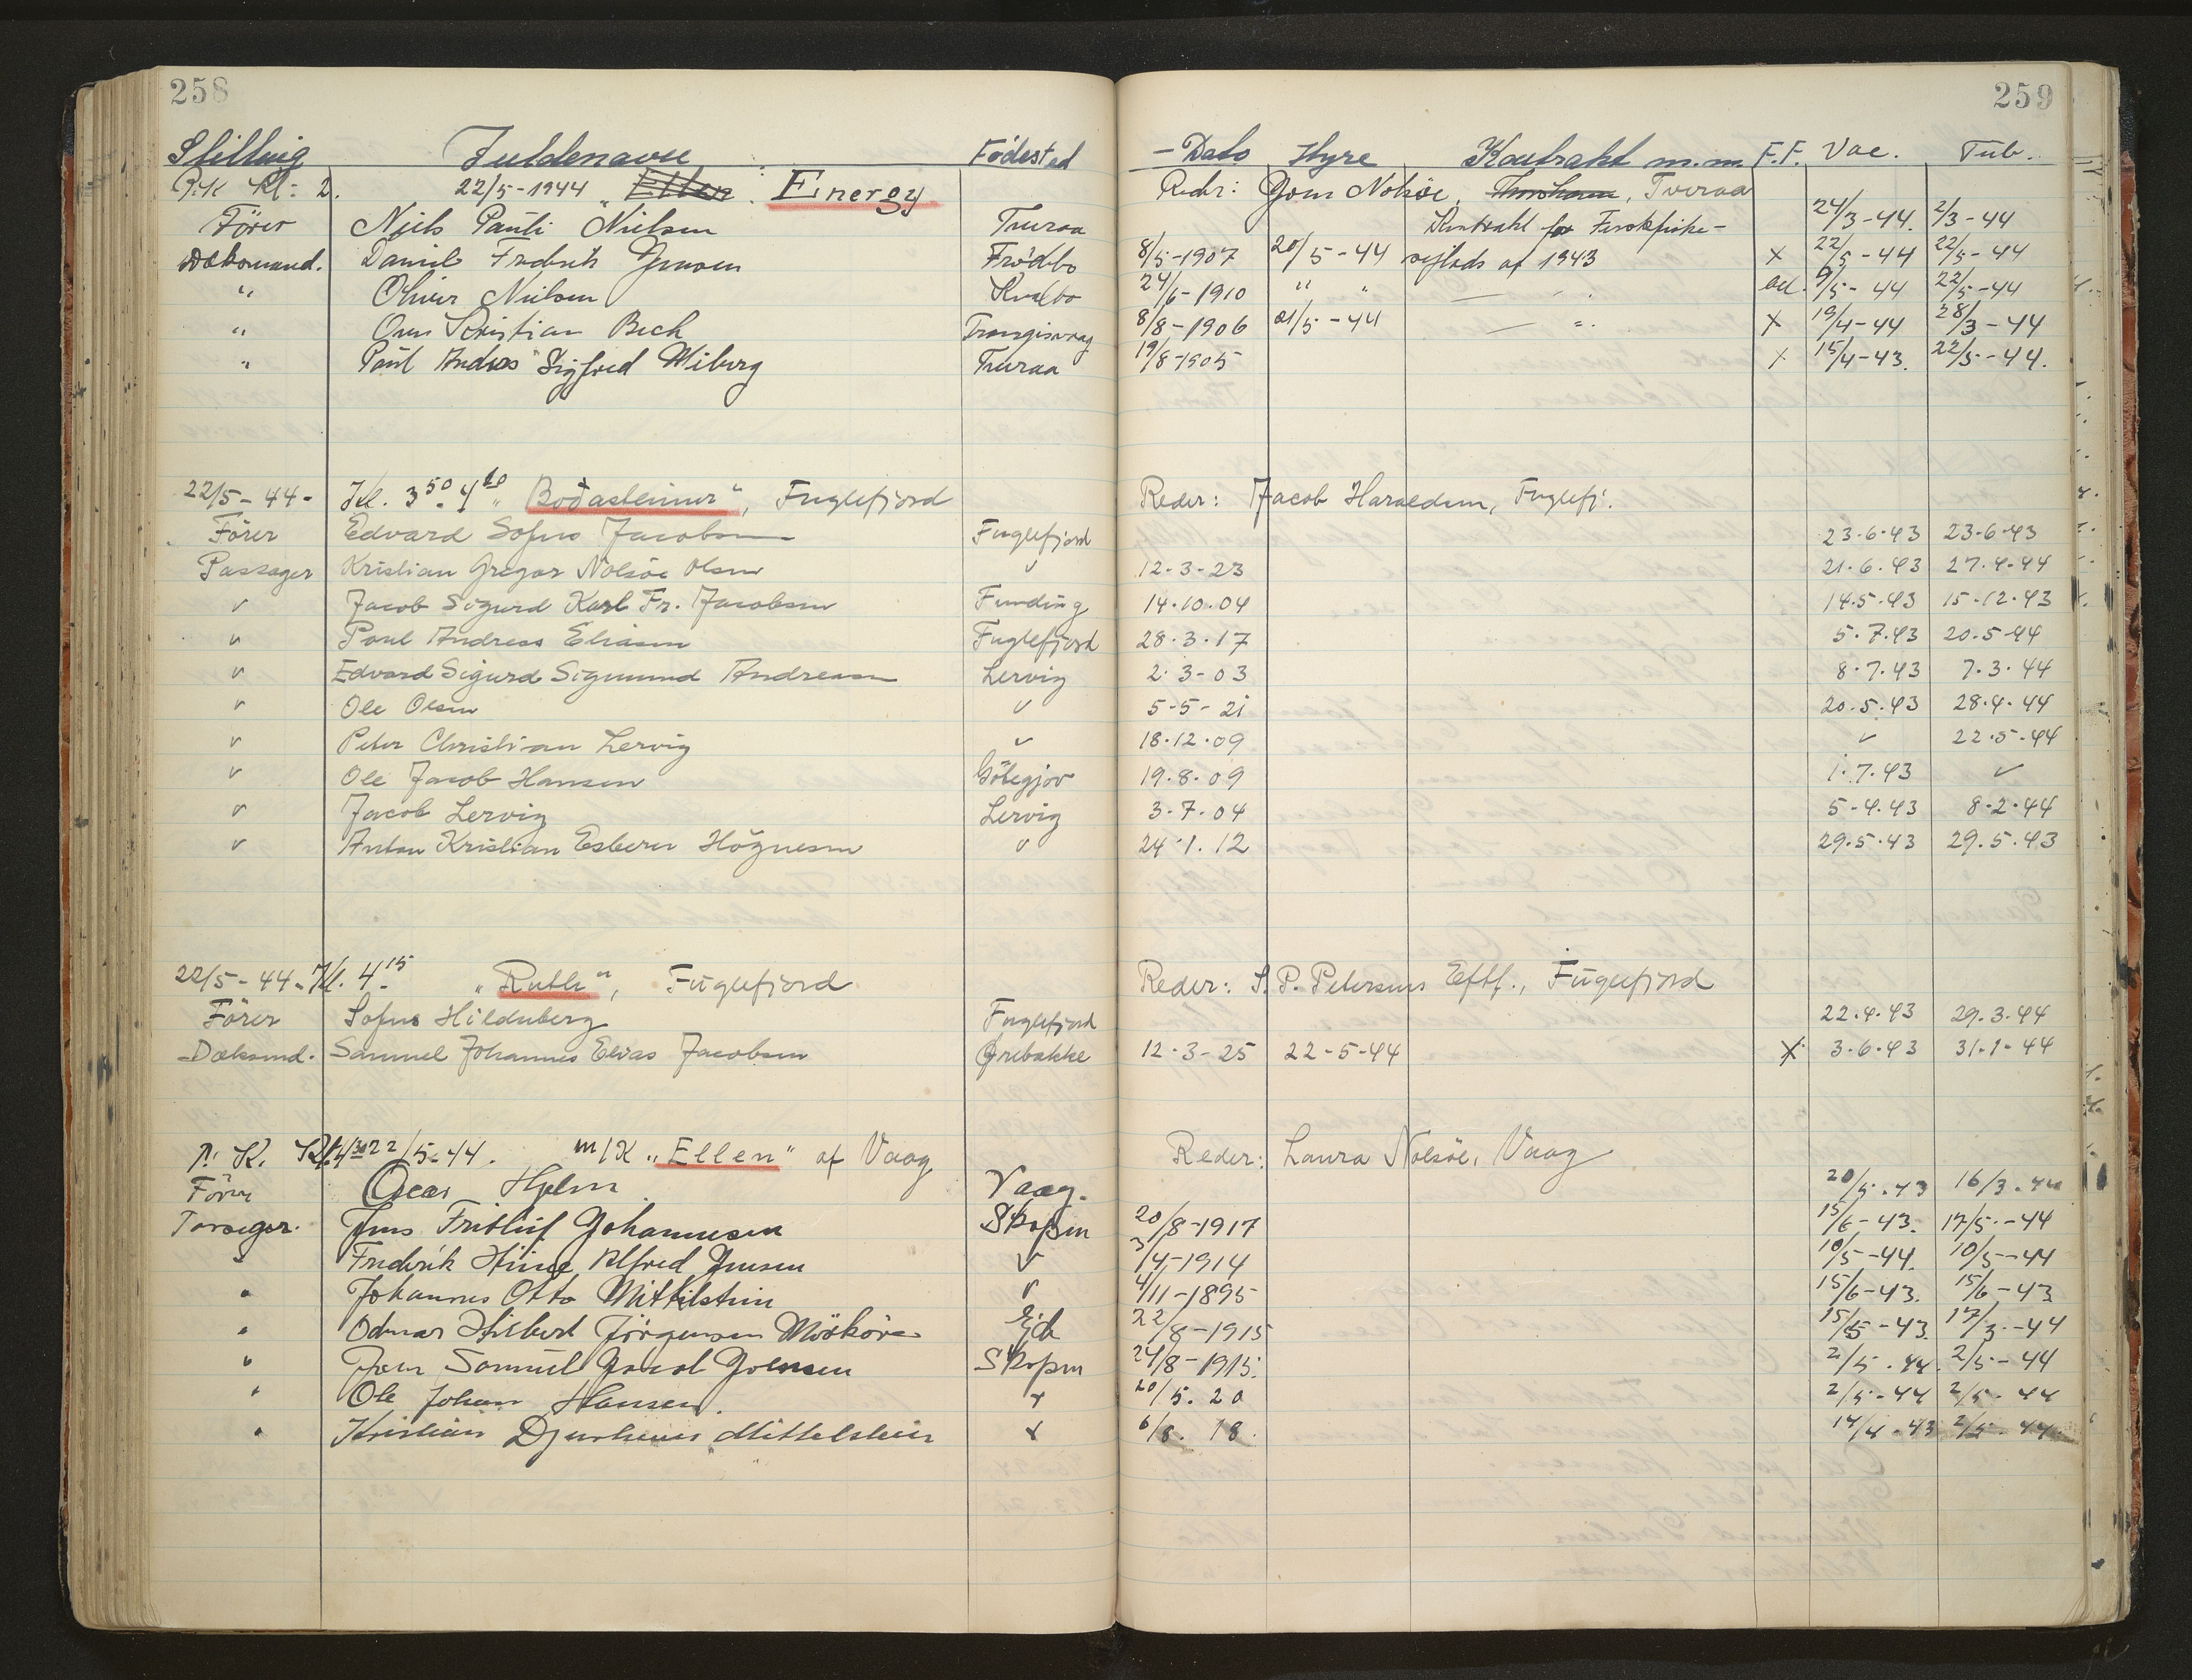 258 259
Stilling Fuldenavn Födested - Dato Hyre Kontrakt m.m. F.F. Vac. Tub.
P.K. Kl: 2. 22/5-1944 „Ellen Energy Reder: Jom Nolsöe, Thorshavn, Tveraa
Förer Niels Pauli Nielsen Tveraa Kontrakt for Ferskfiske- 24/3-44. 2/3-44
Dæksmand. Daniel Fredrik Jensen Frödebo 8/5-1907 20/5-44 sejlads af 1943 x 22/5-44 22/5-44
" Oliver Nielsen Kvalbo 24/6-1910 " " — " 9/5-44 22/5-44
" Kristian Bech Trangisvaag 8/8-1906 21/5-44 — " x 19/4-44 28/3-44
" Paul Andras Sigfred Miberg Tveraa 19/8-1905 x 15/4-43. 22/5-44.
22/5-44- Kl. 3 50 4 „Bodasteinur“, Fuglefjord Reder: Jacob Haraldsen, Fuglefj.
Förer Edvard Sofus Jacobsen Fuglefjord 23.6.43 23.6.43
Passager Kristian Gregor Nolsöe Olsen " 12-3-23 21.6.43 27.4.44
" Jacob Sigurd Karl Fr. Jacobsen Funding 14.10.04 14.5.43 15.12.43
" Poul Andreas Eliasen Fuglefjord 28.3.17 5.7.43 20.5-44
" Edvard Sigurd Sigmund Andreasen Lervig 2.3-03 8.7.43 7.3.44
" Ole Olsen " 5-5-21 20.5.43 28.4.44
" Peter Christian Lervig " 18.12.09 " 22.5.44
" Ole Jacob Hansen Götegjov 19.8.09 1.7.43 "
" Jacob Lervig Lervig 3-7.04 5-4.43 8.2.44
" Anton Kristian Esbern Högnesen " 24.1.12 29.5.43 29.5.43
22/5-44- Kl. 4 15 „Ruth“, Fuglefjord Reder: S.P. Petersens Eftf., Fuglefjord
Förer Sofus Hildenberg Fuglefjord 22.4.43 29.3.44
Dæksmd. Samuel Johannes Elias Jacobsen Örebakke 12-3-25 22-5-44 x 3.6.43 31.1.44
P. K. Kl. 4 30 22/5-44. m/K „Ellen“ af Vaag Reder: Laura Nolsöe, Vaag
Förer Oscar Hjelm Vaag. 20/5.43 16/3.44
Passager. Jens Fritluf Johannesen Skopen 20/8-1917 15/6-43. 17/5-44
" Fredrik Alfred Jensen " 3/4-1914 10/5-44. 10/5-44
" Johannes Otto Mittelstein " 4/11-1895 15/6-43. 15/6-43
" Odmar Jörgensen Mörköre Ejde 22/8-1915 15/5-43 17/3-44
" Joen Samuel Jacob Joensen Skopen 24/8-1915. 2/5.44. 2/5-44
" Ole Johan Hansen. " 20/5.20 2/5-44 2/5-44
" Kristian Djurhuus Mittelstein " 6/8.18. 14/4.43 2/5-44